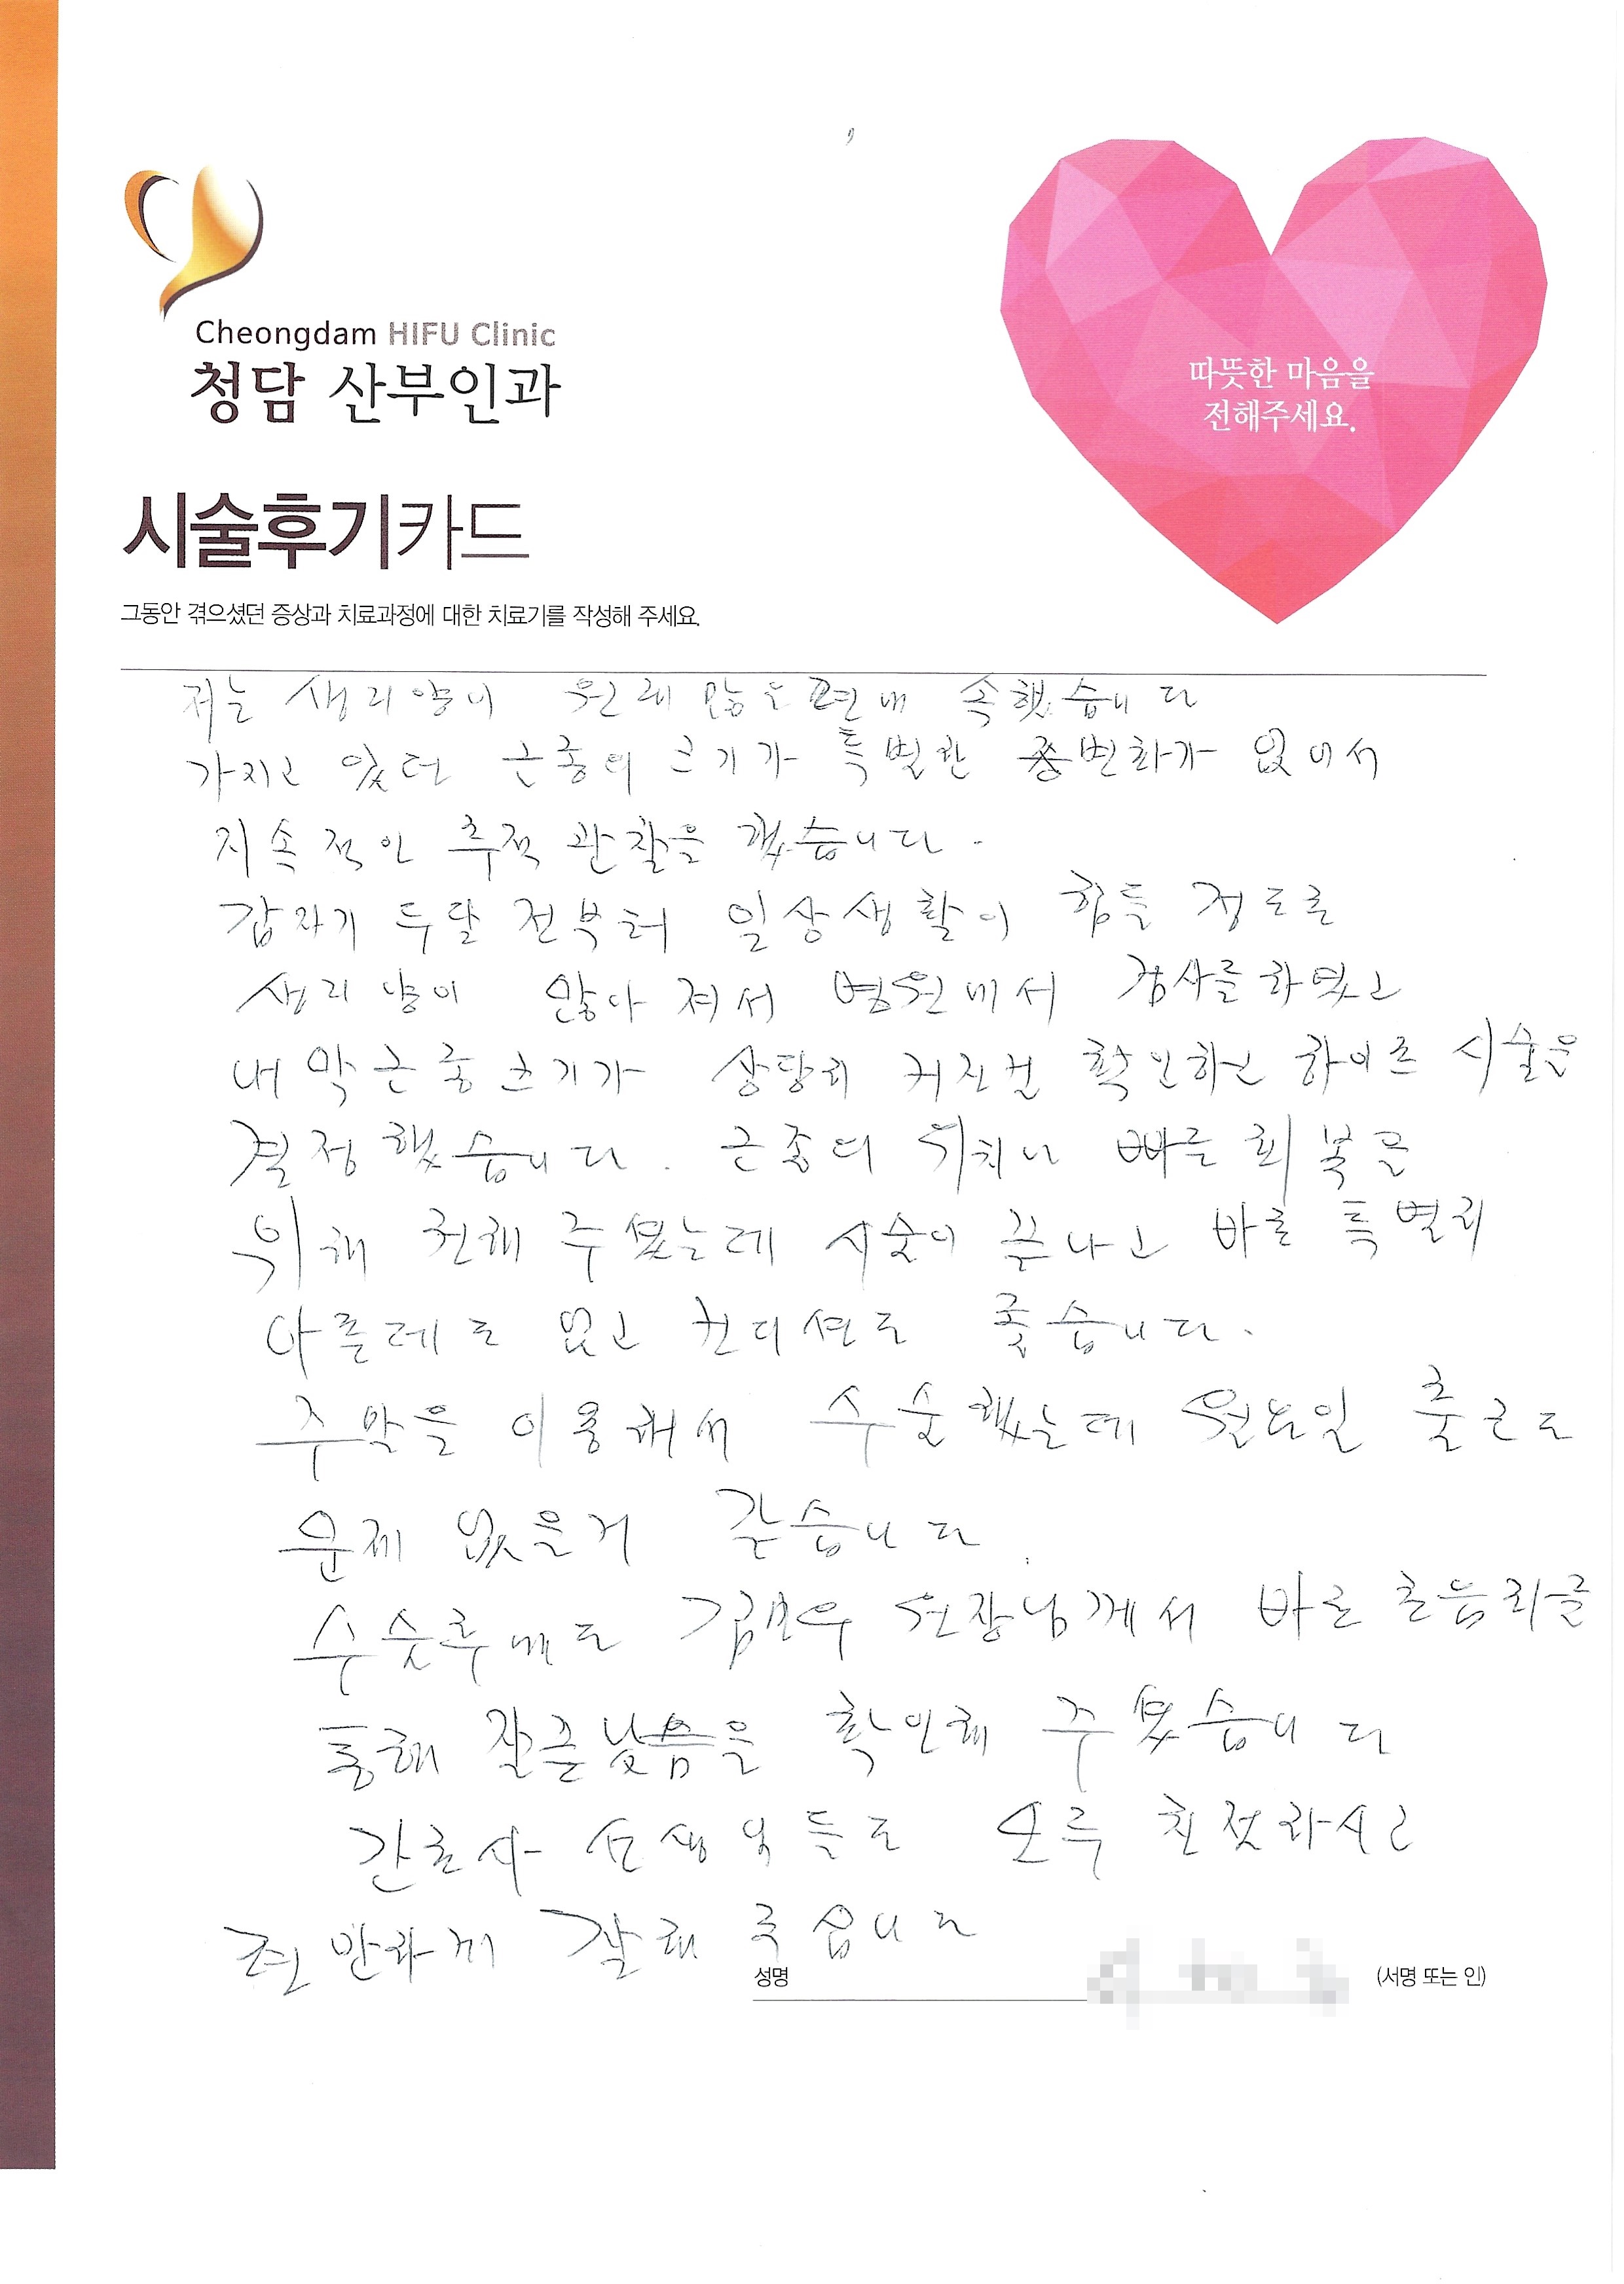 Cheongdam HIFU Clinic
청담 산부인과
따뜻한 마음을
전해주세요.
시술후기카드
그동안 겪으셨던 증상과 치료과정에 대한 치료기를 작성해 주세요.
저는 생리양이 원래 많은 편에 속했습니다
가지고 있던 근종의 크기가 특별한 변화가 없어서
지속적인 추적 관찰을 했습니다.
갑자기 두달 전부터 일상생활이 힘들 정도로
생리양이 많아져서 병원에서 검사를 하였고
내막근종 크기가 상당히 커진걸 확인하고 하이프 시술을
결정했습니다. 근종의 위치나 빠른 회복을
위해 권해 주셨는데 시술이 끝나고 바로 특별히
아픈데도 없고 컨디션도 좋습니다.
주말을 이용해서 수술했는데 월요일 출근도
문제 없을거 같습니다.
수술후에도 원장님께서 바로 초음파를
통해 을 확인해 주셨습니다
간호사 선생님들도 모두 친절하시고
편안하게 잘해 주십니다
성명
(서명 또는 인)